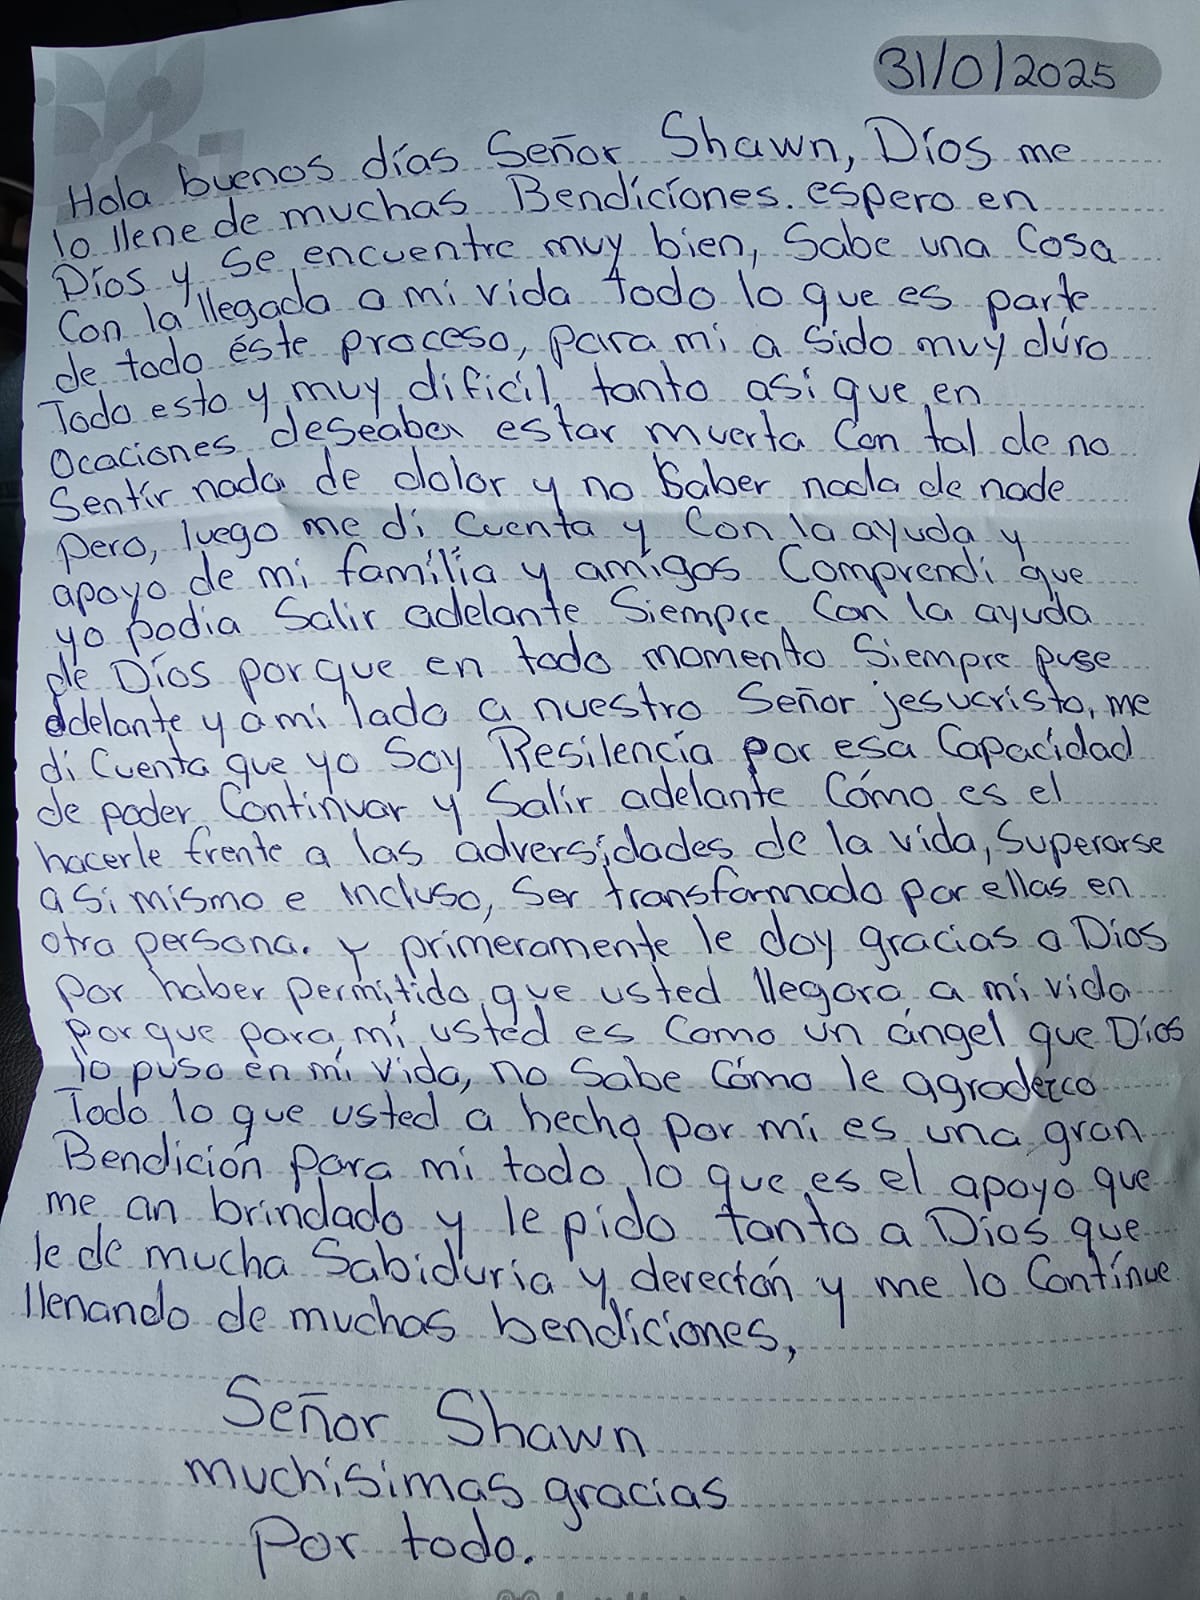 31/0/2025
Hola buenos días Señor Shawn, Díos me
lo llene de muchas Bendíciones. espero en
Díos y se encuentre muy bien, Sabe una Cosa
Con la llegada a mi vida todo lo que es parte
de todo éste proceso, para mi a sido muy dúro
Todo esto y muy dificil, tanto asi que en
Ocaciones deseaber estar muerta Con tal de no
Sentír nada de dolor y no Saber nada de nade
pero, luego me di Cuenta y Con la ayuda y
apoyo de mi família y amígos Comprendi que
yo podia Salir adelante Siempre Con la ayuda
de Díos porque en todo momento Siempre puse
adelante y a mi lado a nuestro Señor jesucristo, me
di Cuenta que yo Soy Resilencía por esa Capacidad
de poder Continuar y Salir adelante Cómo es el
hacerle frente a las adversidades de la vida, Superarse
a Si mismo e incluso, Ser transformado por ellas en
otra persona. y primeramente le doy gracias a Dios
por haber permitido que usted llegara a mi vida
porque para mi usted es Como un ángel que Díos
lo puso en mi vida, no Sabe Cómo le agradezco
Todo lo que usted a hecho por mi es una gran
Bendición para mi todo lo que es el apoyo que
me an brindado y le pido tanto a Díos que
le de mucha Sabiduría y derectón y me lo Contínue
llenando de muchas bendíciones,
Señor Shawn
muchísimas gracias
Por todo.